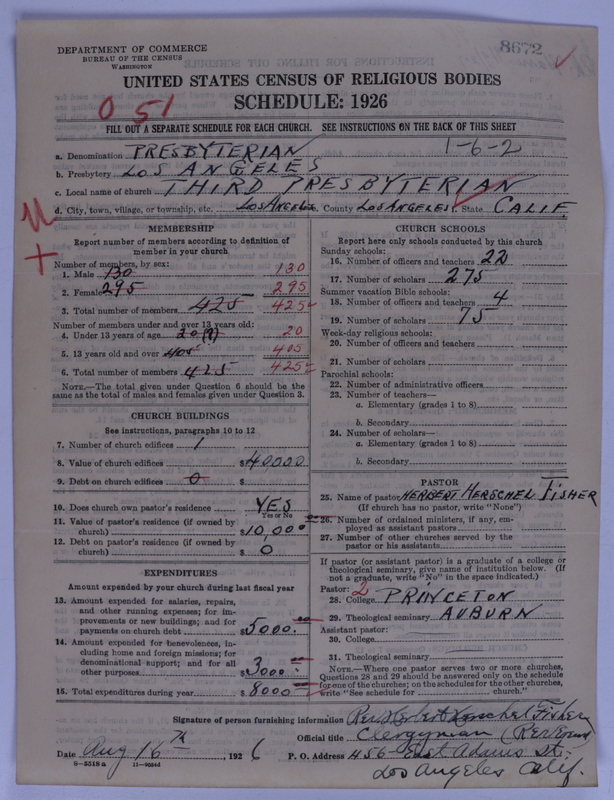 DEPARTMENT OF COMMERCE
BUREAU OF THE CENSUS
WASHINGTON
8672
UNITED STATES CENSUS OF RELIGIOUS BODIES
SCHEDULE: 1926
0 51
FILL OUT A SEPARATE SCHEDULE FOR EACH CHURCH. SEE INSTRUCTIONS ON THE BACK OF THIS SHEET
1-6-2
a. Denomination PRESBYTERIAN
b. Presbytery LOS ANGELES
c. Local name of church THIRD PRESBYTERIAN
d. City, town, village, or township, etc. Los Angeles e. County LOS ANGELES f. State CALIF.
MEMBERSHIP
Report number of members according to definition of
member in your church
Number of members, by sex:
1. Male 130 130
2. Female 295 295
3. Total number of members 425 425
Number of members under and over 13 years old:
4. Under 13 years of age 20 (?) 20
5. 13 years old and over 405 405
6. Total number of members 425 425
NOTE.—The total given under Question 6 should be the
same as the total of males and females given under Question 3.
CHURCH BUILDINGS
See instructions, paragraphs 10 to 12
7. Number of church edifices 1
8. Value of church edifices $40000
9. Debt on church edifices 0 $
10. Does church own pastor's residence YES
Yes or No
11. Value of pastor's residence (if owned by
church) $10,000
12. Debt on pastor's residence (if owned by
church) $ 0
EXPENDITURES
Amount expended by your church during last fiscal year
13. Amount expended for salaries, repairs,
and other running expenses; for im-
provements or new buildings; and for
payments on church debt $5000.
14. Amount expended for benevolences, in-
cluding home and foreign missions; for
denominational support; and for all
other purposes $3000
15. Total expenditures during year $8000
CHURCH SCHOOLS
Report here only schools conducted by this church
Sunday schools:
16. Number of officers and teachers 22
17. Number of scholars 275
Summer vacation Bible schools:
18. Number of officers and teachers 4
19. Number of scholars 75
Week-day religious schools:
20. Number of officers and teachers
21. Number of scholars
Parochial schools:
22. Number of administrative officers
23. Number of teachers—
a. Elementary (grades 1 to 8)
b. Secondary
24. Number of scholars—
a. Elementary (grades 1 to 8)
b. Secondary
PASTOR
25. Name of pastor HERBERT HERSCHEL FISHER
(If church has no pastor, write "None")
26. Number of ordained ministers, if any, em-
ployed as assistant pastors
27. Number of other churches served by the
pastor or his assistants
If pastor (or assistant pastor) is a graduate of a college or
theological seminary, give name of institution below. (If
not a graduate, write "No" in the space indicated.)
Pastor: 2
28. College PRINCETON
29. Theological seminary AUBURN
Assistant pastor:
30. College
31. Theological seminary
NOTE.—Where one pastor serves two or more churches,
Questions 28 and 29 should be answered only on the schedule
for one of the churches; on the schedules for the other churches,
write "See schedule for church."
Signature of person furnishing information Rev. Herbert Herschel Fisher
Official title Clergyman (Reverend)
Date Aug 16th, 1926 P. O. Address 456 East Adams St.
8-5518 a
Los Angeles Calif.